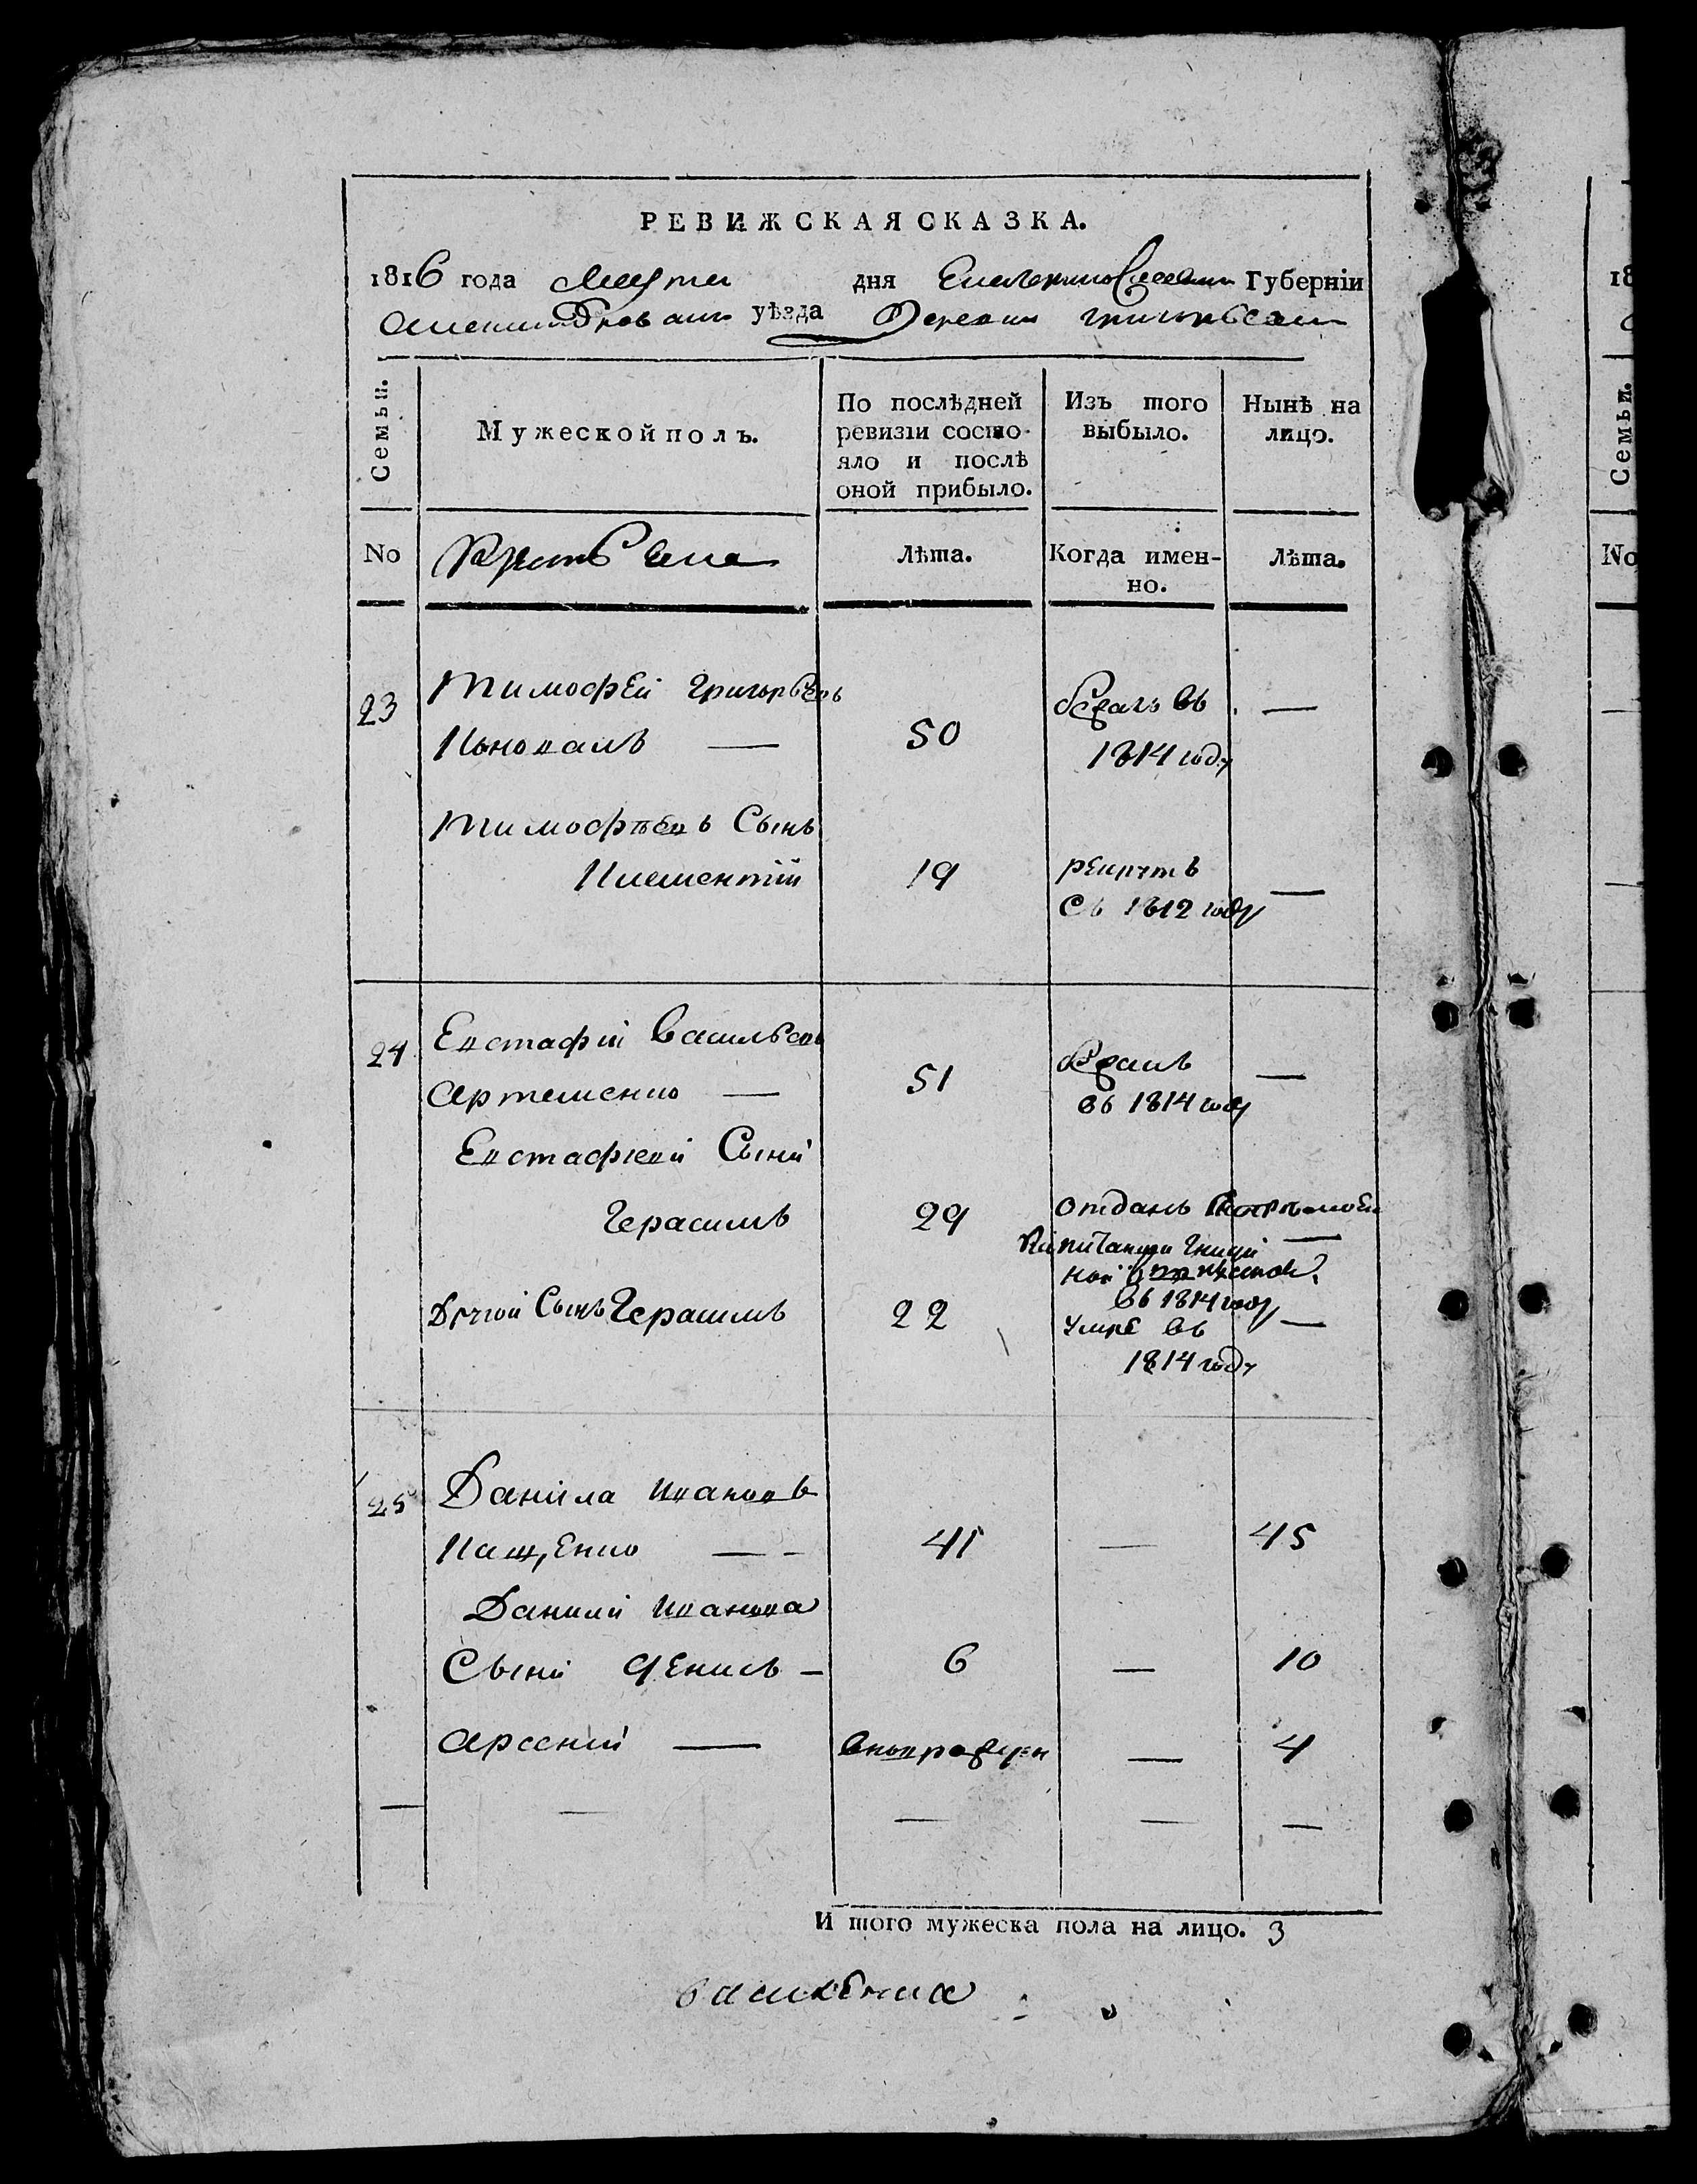 РЕВИЖСКАЯ СКАЗКА.
1816 года Марта дня Екатеринославской Губерніи
Александровского уѣзда Деревни Григорьевки
Семьи.
Мужеской полъ.
По послѣдней ревизіи состо-
яло и послѣ
оной прибыло.
Изъ того выбыло.
Нынѣ на лицо.
No
Крестьяне
Лѣта.
Когда имен-
но.
Лѣта.
23
Тимофей Григорьевъ
Коновалъ — 50
бежалъ въ
1814 году —
Тимофеевъ Сынъ
Климентій 19
рекрутъ
въ 1812 году —
24
Евстафій Васильевъ
Артеменко — 51
бежалъ
въ 1814 году —
Евстафіевы Сыны
Герасимъ 29
отданъ
въ 1814 году —
Другой Сынъ Герасимъ 22
умре въ
1814 году —
25
Данила Ивановъ
Кащенко — 41 — 45
Данилы Иванова
Сыны Денисъ — 6 — 10
Арсеній — — 4
И того мужеска пола на лицо. 3
18
Семьи.
No